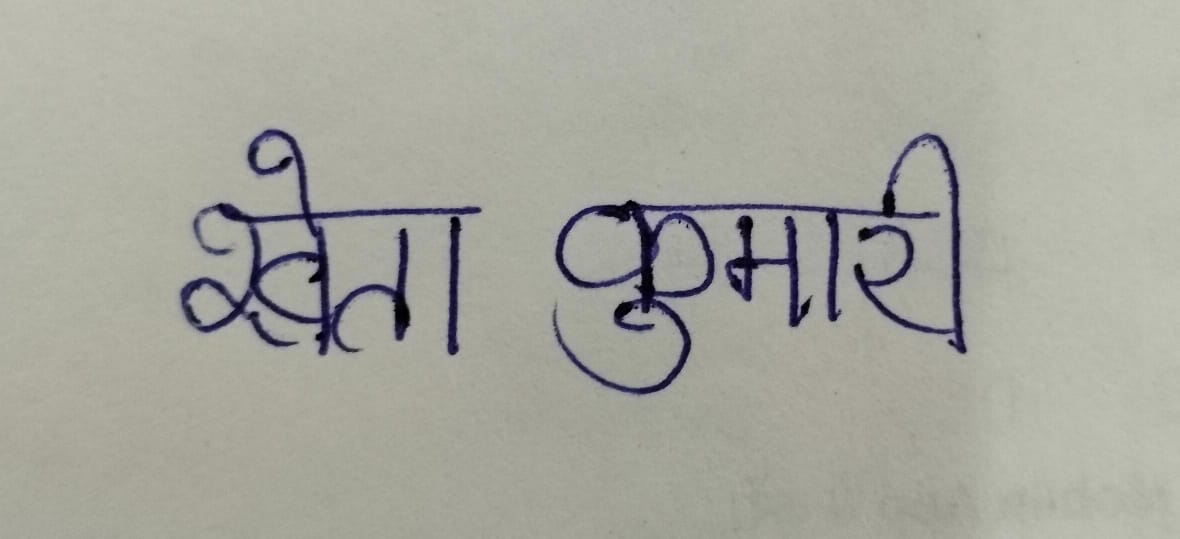 श्वेता कुमारी